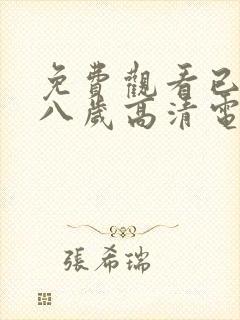 免費觀看已
八歲高清電
張希瑞